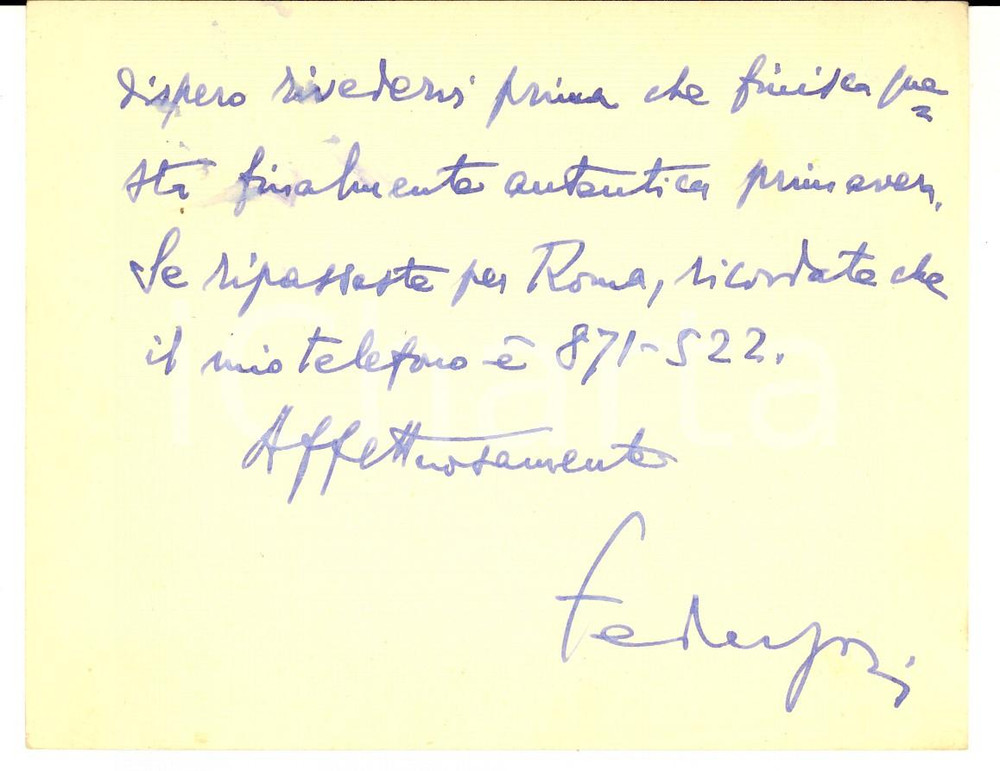 dispero rivedervi prima che finisca que=
sta finalmente autentica primavera.
Se ripassaste per Roma, ricordate che
il mio telefono è 871-522.
Affettuosamente
Federzoni
iCharta